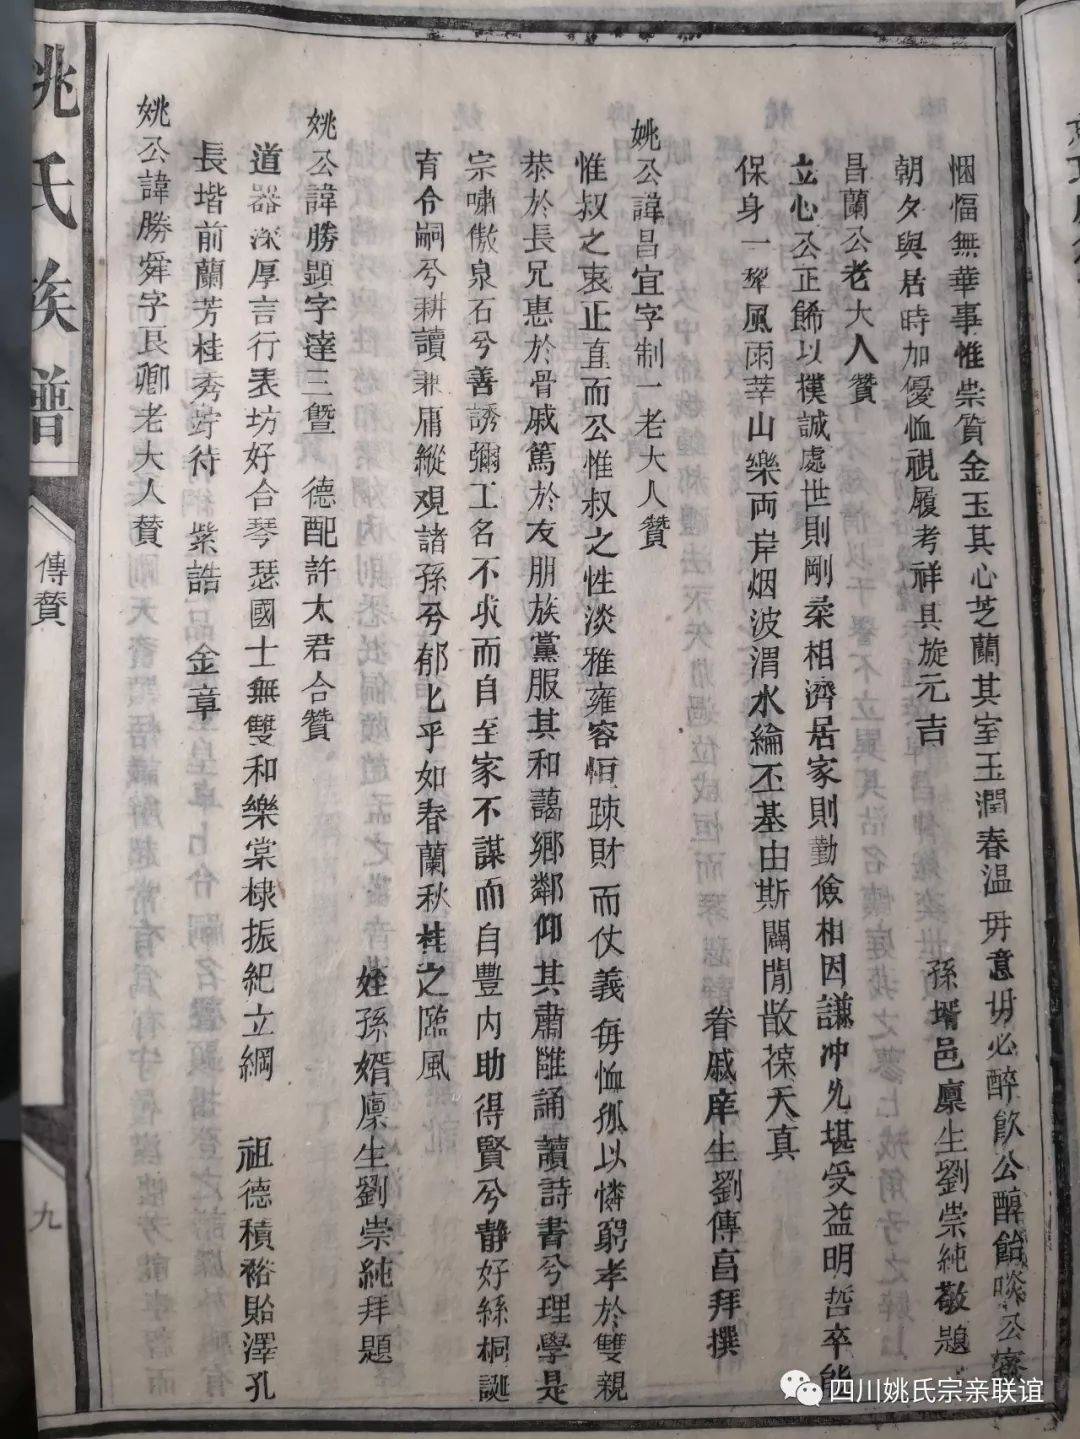 悃愊無華事惟崇質金玉其心芝蘭其室玉潤春温毋意毋必醉飲公醇飴啖公蜜
朝夕與居時加優恤視履考祥其旋元吉
孫壻邑廩生劉崇純敬題
昌蘭公老大人贊
立心公正飾以樸誠處世則剛柔相濟居家則勤儉相因謙冲允堪受益明哲卒能
保身一犂風雨莘山樂両岸烟波渭水綸丕基由斯闢閒散葆天真
眷戚庠生劉傳昌拜撰
姚公諱昌宜字制一老大人贊
惟叔之衷正直而公惟叔之性淡雅雍容恒踈財而仗義每恤孤以憐窮孝於雙親
恭於長兄惠於骨戚篤於友朋族黨服其和藹鄉鄰仰其肅雝誦讀詩書兮理學是
宗嘯傲泉石兮善誘彌工名不求而自至家不謀而自豐内助得賢兮靜好絲桐誕
有令嗣兮耕讀兼庸縱观諸孫兮郁匕乎如春蘭秋桂之臨風
姪孫婿廩生劉崇純拜題
姚公諱勝顕字達三暨 德配許太君合贊
道器深厚言行表坊好合琴瑟國士無雙和樂棠棣振紀立綱 祖德積裕貽澤孔
長堦前蘭芳桂秀竚待 紫誥金章
姚公諱勝舜字良卿老大人贊
姚氏族譜
傳贊
九
四川姚氏宗亲联谊